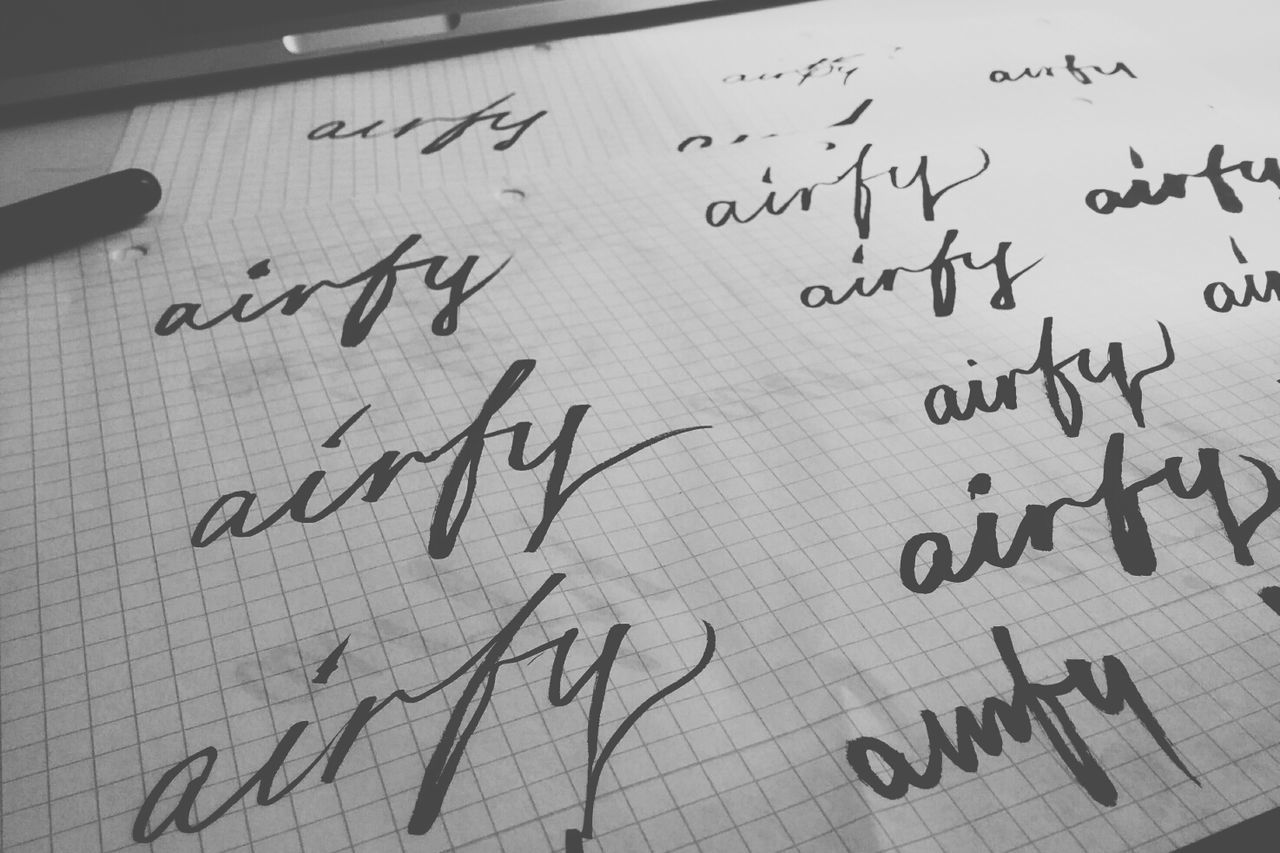 airfy
airfy
airfy
airfy
airfy
airfy
airfy
airfy
airfy
airfy
airfy
airfy
air
airfy